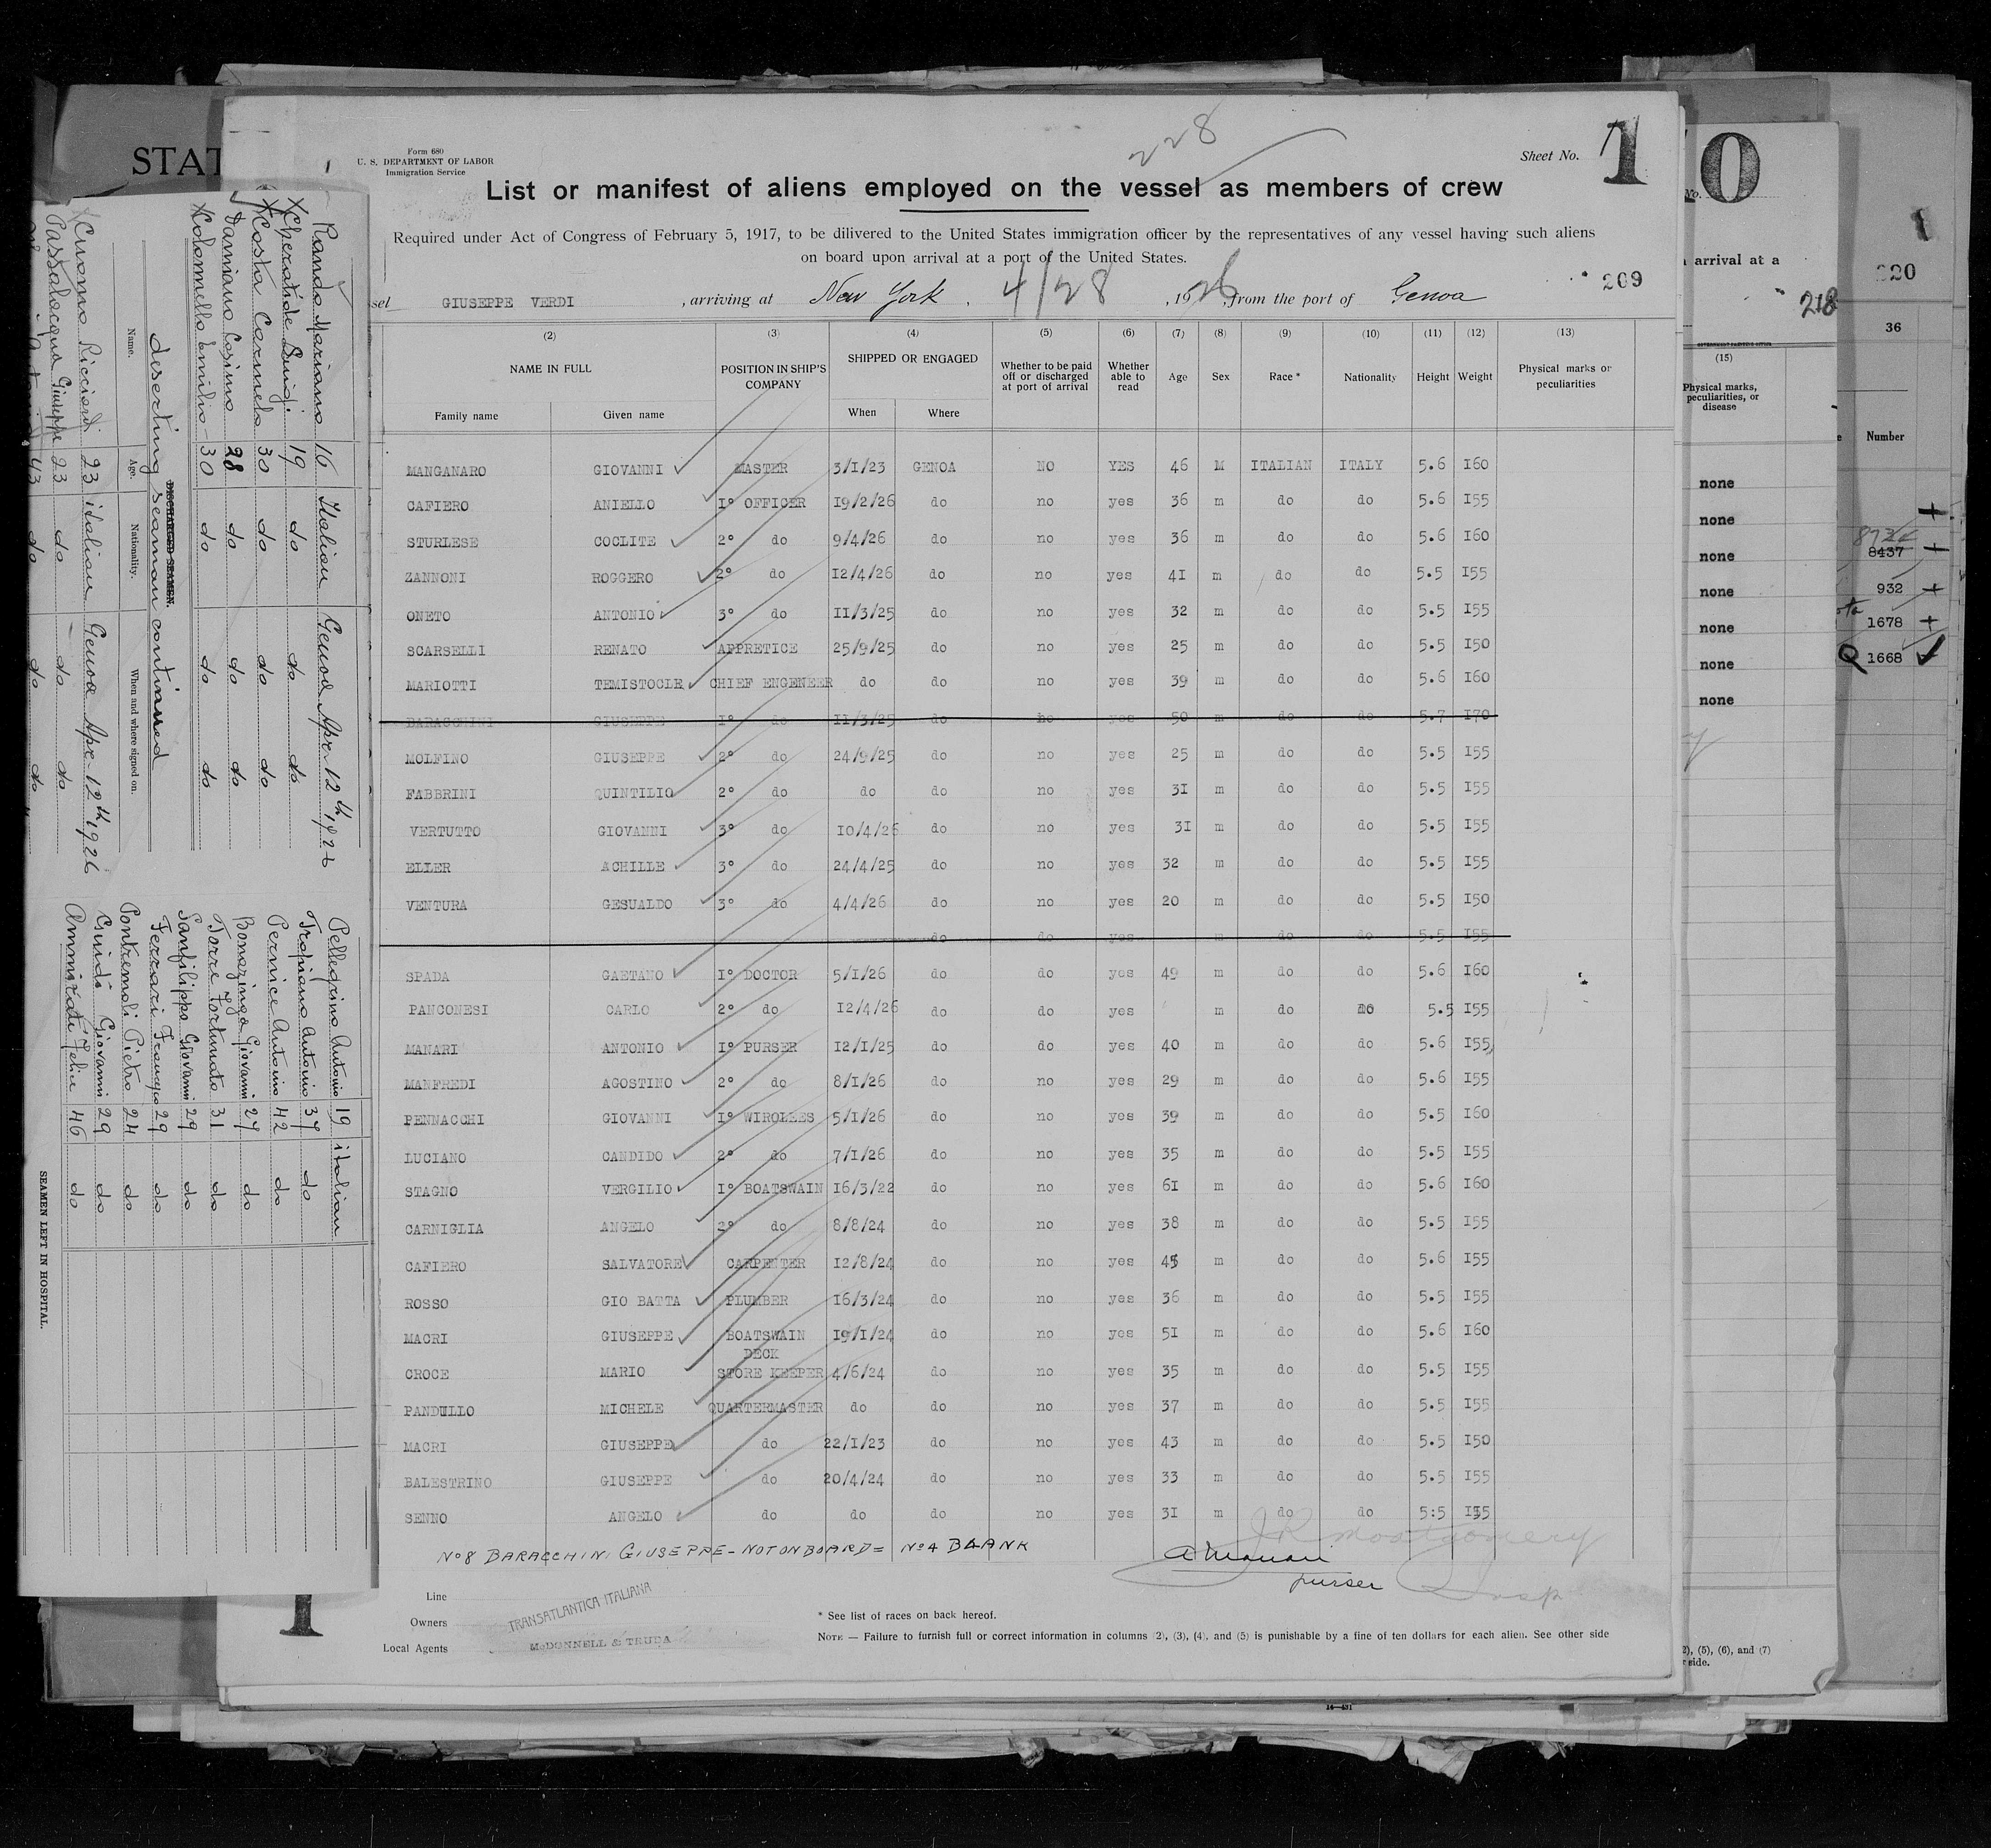 Form 680
U. S. DEPARTMENT OF LABOR
Immigration Service
228
Sheet No. 1
List or manifest of aliens employed on the vessel as members of crew
Required under Act of Congress of February 5, 1917, to be dilivered to the United States immigration officer by the representatives of any vessel having such aliens
on board upon arrival at a port of the United States.
sel GIUSEPPE VERDI , arriving at New York . 4/28 , 1926, from the port of Genoa 209
(2) (3) (4) (5) (6) (7) (8) (9) (10) (11) (12) (13)
NAME IN FULL POSITION IN SHIP'S COMPANY SHIPPED OR ENGAGED Whether to be paid off or discharged at port of arrival Whether able to read Age Sex Race * Nationality Height Weight Physical marks or peculiarities
Family name Given name When Where
MANGANARO GIOVANNI MASTER 3/I/23 GENOA NO YES 46 M ITALIAN ITALY 5.6 I60
CAFIERO ANIELLO I° OFFICER I9/2/26 do no yes 36 m do do 5.6 I55
STURLESE COCLITE 2° do 9/4/26 do no yes 36 m do do 5.6 I60
ZANNONI ROGGERO 2° do I2/4/26 do no yes 4I m do do 5.5 I55
ONETO ANTONIO 3° do II/3/25 do no yes 32 m do do 5.5 I55
SCARSELLI RENATO APPRETICE 25/9/25 do no yes 25 m do do 5.5 I50
MARIOTTI TEMISTOCLE CHIEF ENGENEER do do no yes 39 m do do 5.6 I60
BARACCHINI GIUSEPPE I° do II/3/25 do no yes 50 m do do 5.7 I70
MOLFINO GIUSEPPE 2° do 24/9/25 do no yes 25 m do do 5.5 I55
FABBRINI QUINTILIO 2° do do do no yes 3I m do do 5.5 I55
VERTUTTO GIOVANNI 3° do I0/4/26 do no yes 3I m do do 5.5 I55
ELLER ACHILLE 3° do 24/4/25 do no yes 32 m do do 5.5 I55
VENTURA GESUALDO 3° do 4/4/26 do no yes 20 m do do 5.5 I50
do do yes m do do 5.5 I55
SPADA GAETANO I° DOCTOR 5/I/26 do do yes 49 m do do 5.6 I60
PANCONESI CARLO 2° do I2/4/26 do do yes m do 5.5 I55
MANARI ANTONIO I° PURSER I2/I/25 do do yes 40 m do do 5.6 I55
MANFREDI AGOSTINO 2° do 8/I/26 do no yes 29 m do do 5.6 I55
PENNACCHI GIOVANNI I° WIROLEES 5/I/26 do no yes 39 m do do 5.5 I60
LUCIANO CANDIDO 2° do 7/I/26 do no yes 35 m do do 5.5 I55
STAGNO VERGILIO I° BOATSWAIN I6/3/22 do no yes 6I m do do 5.6 I60
CARNIGLIA ANGELO 2° do 8/8/24 do no yes 38 m do do 5.5 I55
CAFIERO SALVATORE CARPENTER I2/8/24 do no yes 45 m do do 5.6 I55
ROSSO GIO BATTA PLUMBER I6/3/24 do no yes 36 m do do 5.5 I55
MACRI GIUSEPPE BOATSWAIN I9/I/24 do no yes 5I m do do 5.6 I60
CROCE MARIO DECK STORE KEEPER 4/6/24 do no yes 35 m do do 5.5 I55
PANDULLO MICHELE QUARTERMASTER do do no yes 37 m do do 5.5 I55
MACRI GIUSEPPE do 22/I/23 do no yes 43 m do do 5.5 I50
BALESTRINO GIUSEPPE do 20/4/24 do no yes 33 m do do 5.5 I55
SENNO ANGELO do do do no yes 3I m do do 5:5 I55
No 8 BARACCHINI GIUSEPPE - NOT ON BOARD = No 4 BLANK
A Manari
purser
J R Montgomery
Insp
Line
Owners TRANSATLANTICA ITALIANA
Local Agents McDONNELL & TRUDA
* See list of races on back hereof.
NOTE — Failure to furnish full or correct information in columns (2), (3), (4), and (5) is punishable by a fine of ten dollars for each alien. See other side
STAT
Rando Mariano 16 Italian Genoa Apr 12th 1926
Cheratide Luigi 19 do do do
Costa Carmelo 30 do do do
Damiano Cosimo 28 do do do
Colonnello Emilio 30 do do do
DISCHARGED SEAMEN.
deserting seaman continued
Name. Age. Nationality. When and where signed on.
Cuomo Ricciardi 23 italian Genoa Apr 12th 1926
Passalacqua Giuseppe 23 do do do
43 do do do
Pellegrino Antonio 19 italian
Tropiano Antonio 37 do
Pernice Antonio 42 do
Bonazinga Giovanni 27 do
Torre Fortunato 31 do
Sanfilippo Giovanni 29 do
Ferrari Francesco 29 do
Pontremoli Pietro 24 do
Guidi Giovanni 29 do
Ammirati Felice 46 do
SEAMEN LEFT IN HOSPITAL.
1
No. 0
arrival at a
218
(15)
Physical marks, peculiarities, or disease
none
none
none
none
none
none
none
2), (5), (6), and (7)
side.
220
36
Number
8437
932
1678
1668
16—431